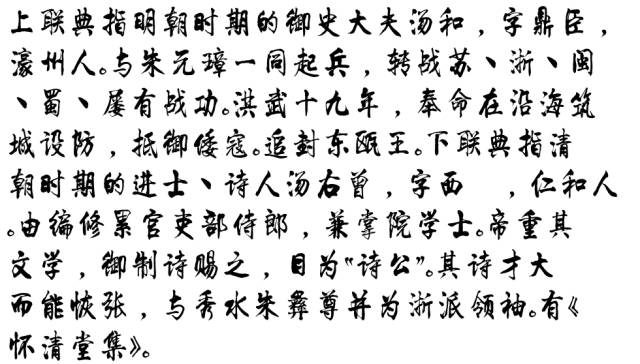 上联典指明朝时期的御史大夫汤和，字鼎臣，
濠州人。与朱元璋一同起兵，转战苏、浙、闽
、蜀、屡有战功。洪武十九年，奉命在沿海筑
城设防，抵御倭寇。追封东瓯王。下联典指清
朝时期的进士、诗人汤右曾，字西　，仁和人
。由编修累官吏部侍郎，兼掌院学士。帝重其
文学，御制诗赐之，目为“诗公”。其诗才大
而能恢张，与秀水朱彝尊并为浙派领袖。有《
怀清堂集》。